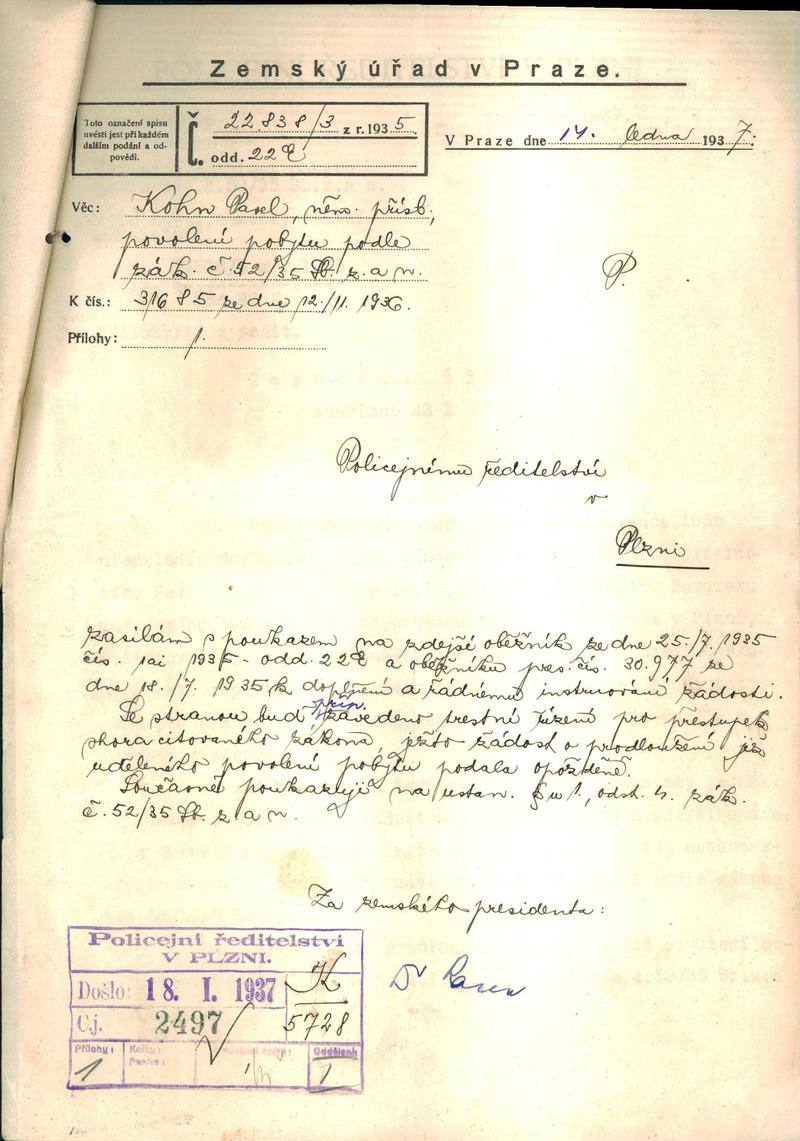 Zemský úřad v Praze.
Toto označení spisu
uvésti jest při každém
dalším podání a od-
povědi.
Č. 22.838/3 z r. 1935.
odd. 22E
V Praze dne 14. ledna 1937.
Věc: Kohn Pavel, něm. přísl.,
povolení pobytu podle
zák. č. 52/35 Sb. z. a n.
P.
K čís.: 31685 ze dne 12./11. 1936.
Přílohy: 1.
Policejnímu ředitelství
v
Plzni
zasílám s poukazem na zdejší oběžník ze dne 25./7. 1935
čís. 1935 - odd. 22E a oběžníku pres. čís. 30.977 ze
dne 18./7. 1935 k doplnění a řádnému instruování žádosti.
Se stranou buď příp. zavedeno trestní řízení pro přestupek
shora citovaného zákona, ježto žádost o prodloužení již
uděleného povolení pobytu podala opožděně.
Současně poukazuji na ustan. §u 1, odst. 4. zák.
č. 52/35 Sb. z. a n.
Za zemského presidenta:
Dr
Policejní ředitelství
V PLZNI.
Došlo: 18. I. 1937
K
Čj. 2497
5728
Přílohy: 1
Kolky:
Peníze:
Oddělení 1